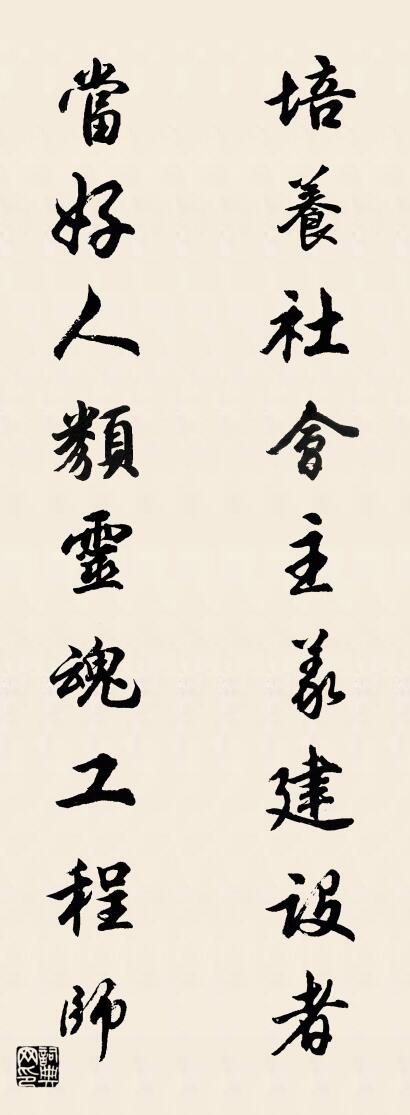 培養社會主義建設者
當好人類靈魂工程師
詞典網印